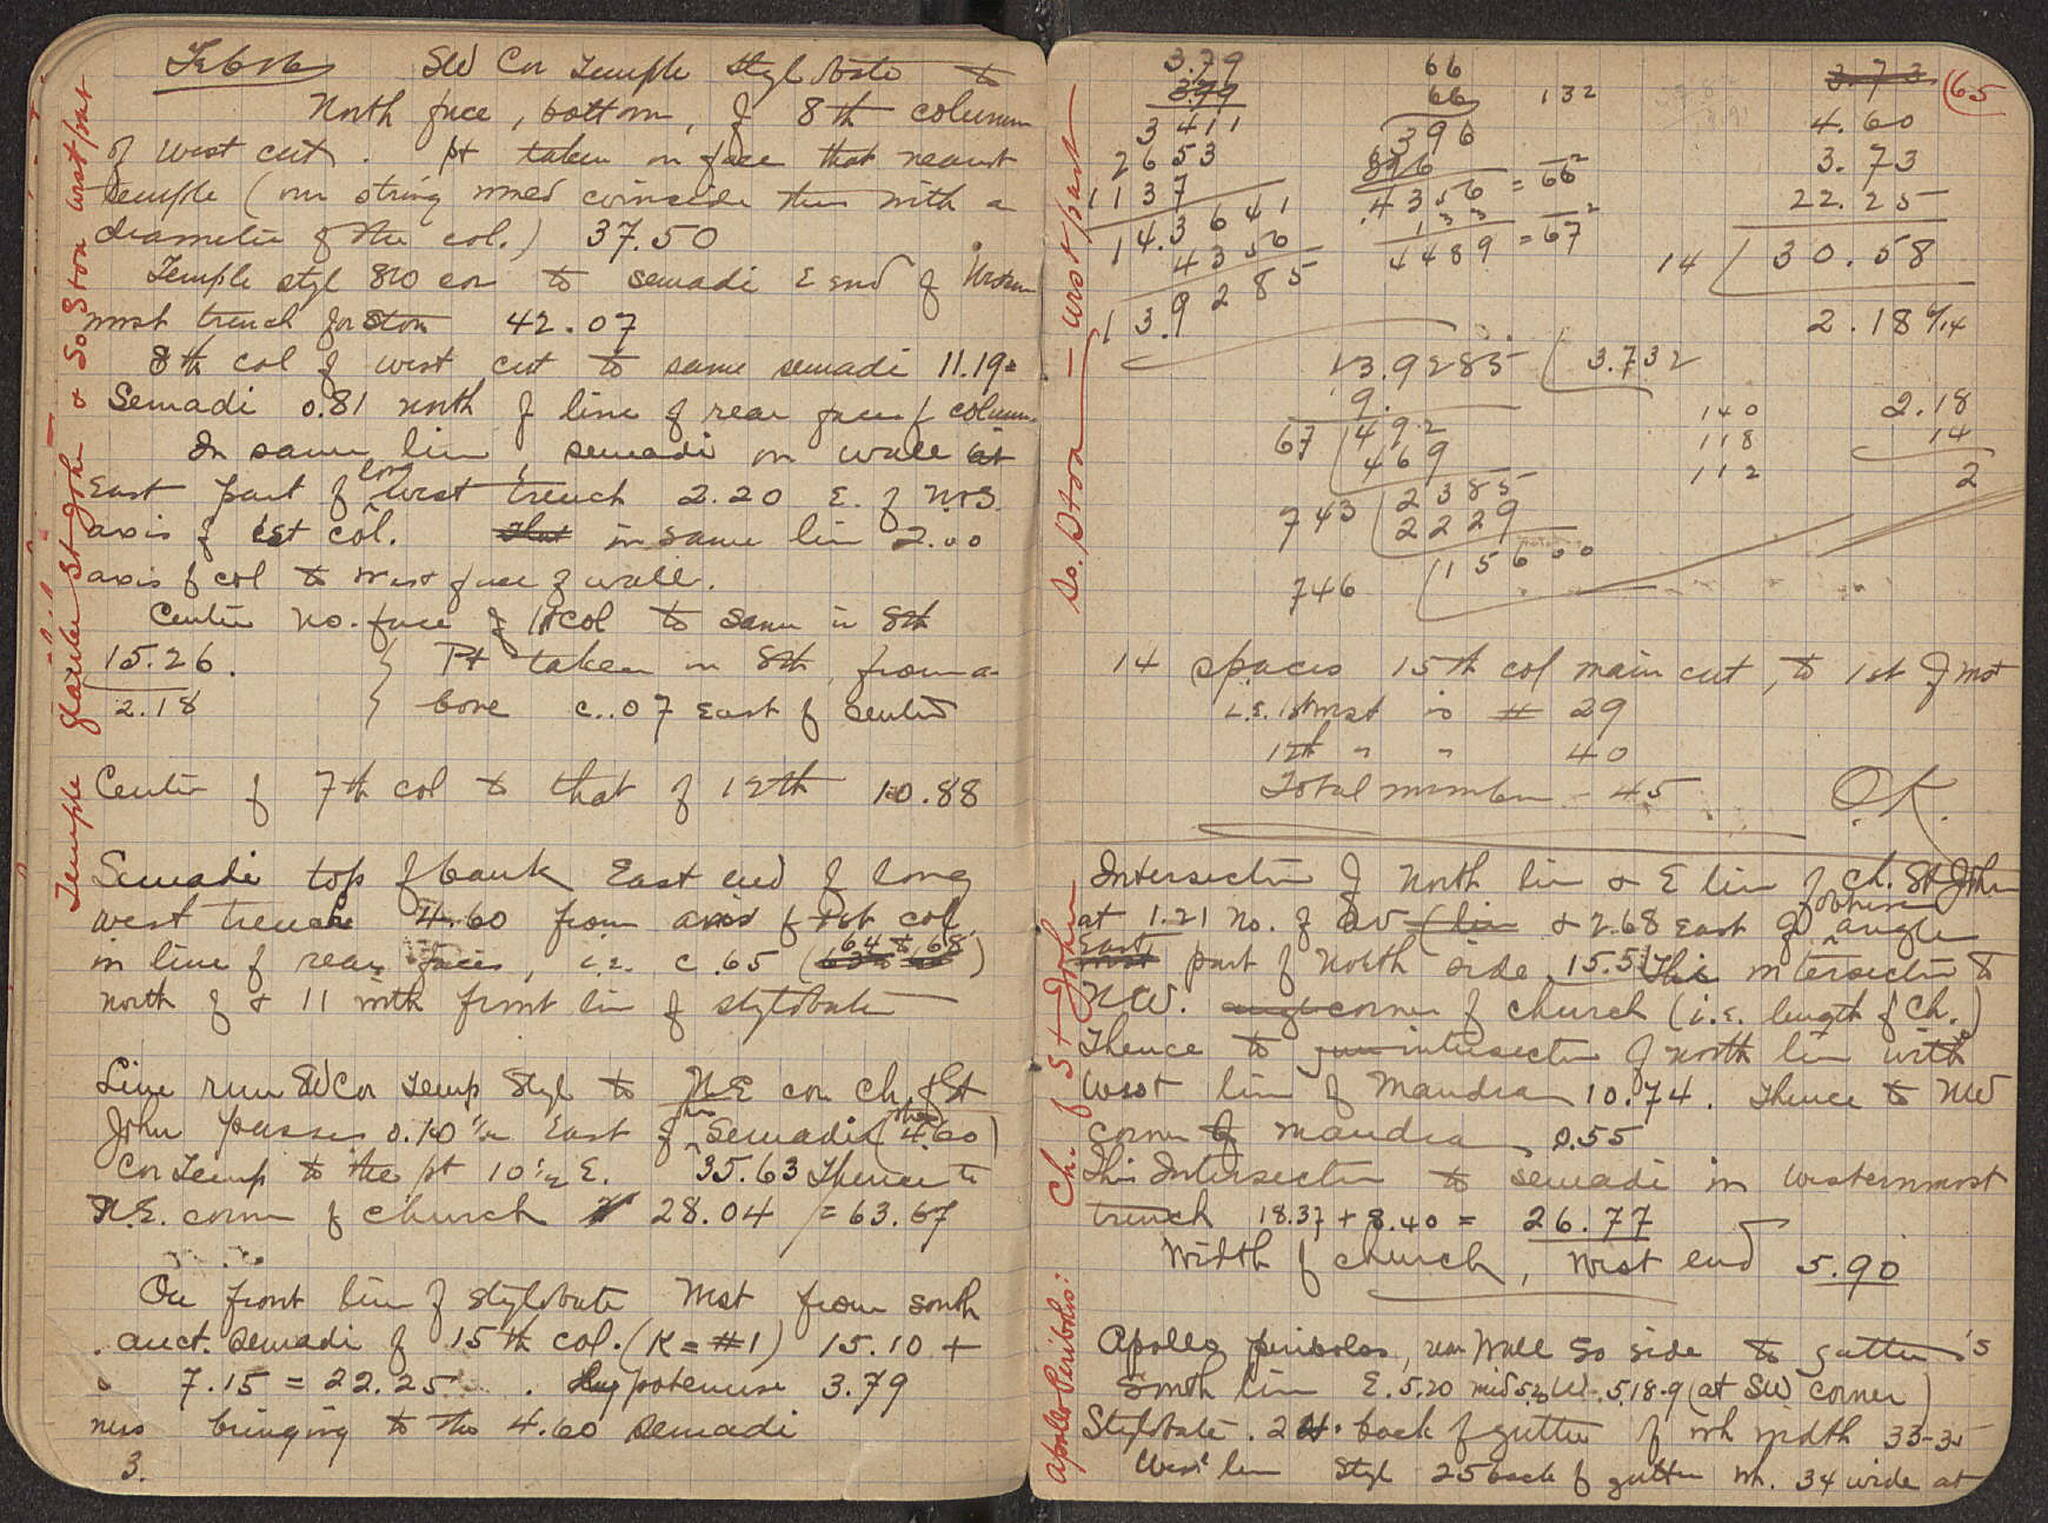 Feb 16 SW Cor Temple Stylobate to
North face, bottom, of 8th column
of west cut. pt taken on face that nearest
temple (our string would coincide then with a
diameter of the col.) 37.50
Temple styl SW cor to semadi E end of Western
most trench for Stoa 42.07
8th col of west cut to same semadi 11.19 =
Semadi 0.81 north of line of rear face of column
In same line, semadi on wall at
East part of long west trench 2.20 E. of N & S.
axis of 1st col. That in same line 2.00
axis of col to west face of wall.
Center no. face of 1st col to same in 8th
15.26. } Pt taken in 8th, from a-
2.18 } bove c. .07 East of center
Center of 7th col to that of 12th 10.88
Semadi top of bank East end of long
west trench 4.60 from axis of 1st col
in line of rear faces, i.e. c .65 (64 to 68)
north of & 11 with front line of stylobate
Line run SW Cor Temp Styl to N.E cor Ch. of St
John passes 0.10 1/2 East of this Semadi (the 4.60)
Cor Temp to the pt 10 1/2 E. 35.63 Thence to
N.E. corner of church 28.04 = 63.67
On front line of stylobate West from south
anct. semadi of 15th col. (K = #1) 15.10 +
7.15 = 22.25. Hypotenuse 3.79
bringing to the 4.60 semadi
3.
Temple
& So Stoa west part
65
So. Stoa — west part
3.79
3.79
3411
2653
1137
14.3641
4356
13.9285
66
66
396
396
4356 = 66²
133
4489 = 67²
132
3.73
4.60
3.73
22.25
14 30.58
2.18 6/14
13.9285 3.732
9.
67 492
469
743 2385
2229
746 15600
140
118
112
2.18
14
2
14 spaces 15th col main cut, to 1st of west
i.e. 1st west is # 29
12th " " 40
Total number - 45
O.K.
Intersection of North line & E line of Ch. St John
at 1.21 No. of & 2.68 east of obtuse angle
East part of North side 15.51 This intersection to
N.W. corner of church (i.e. length of Ch.)
Thence to intersection of north line with
west line of Mandra 10.74. Thence to NW
corner of mandra 0.55
This Intersection to semadi in westernmost
trench 18.37 + 8.40 = 26.77
Width of church, West end 5.90
Ch. of St John
Apollo Peribolos:
Apollo peribolos, rear Wall So side to gutter's
South line E. 5.20 mid 5.20 W. 5.18-9 (at SW corner)
Stylobate. 24. back of gutter of wh width 33-35
West line Styl 25 back of gutter wh. 34 wide at